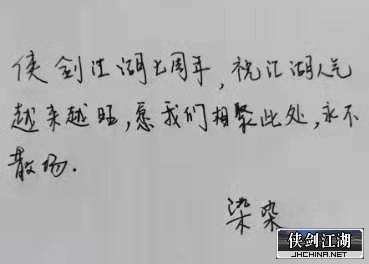 侠剑江湖七周年，祝江湖人气
越来越旺，愿我们相聚此处，永不
散场.
染染
侠剑江湖
JHCHINA.NET